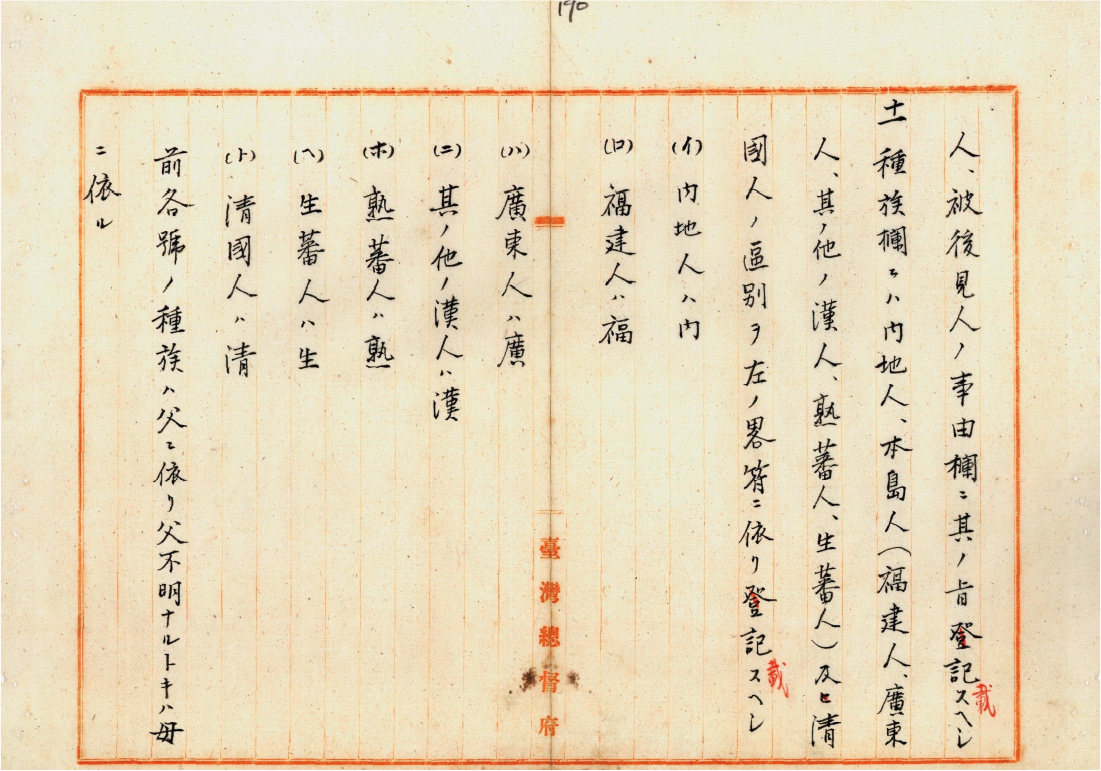 190
人、被後見人ノ事由欄ニ其ノ旨登記スヘシ
載
十一 種族欄ニハ内地人、本島人(福建人、廣東
人、其ノ他ノ漢人、熟蕃人、生蕃人)及ヒ清
國人ノ區別ヲ左ノ畧符ニ依リ登記スヘシ
載
(イ) 内地人ハ内
(ロ) 福建人ハ福
臺灣總督府
(ハ) 廣東人ハ廣
(ニ) 其ノ他ノ漢人ハ漢
(ホ) 熟蕃人ハ熟
(ヘ) 生蕃人ハ生
(ト) 清國人ハ清
前各號ノ種族ハ父ニ依リ父不明ナルトキハ母
ニ依ル